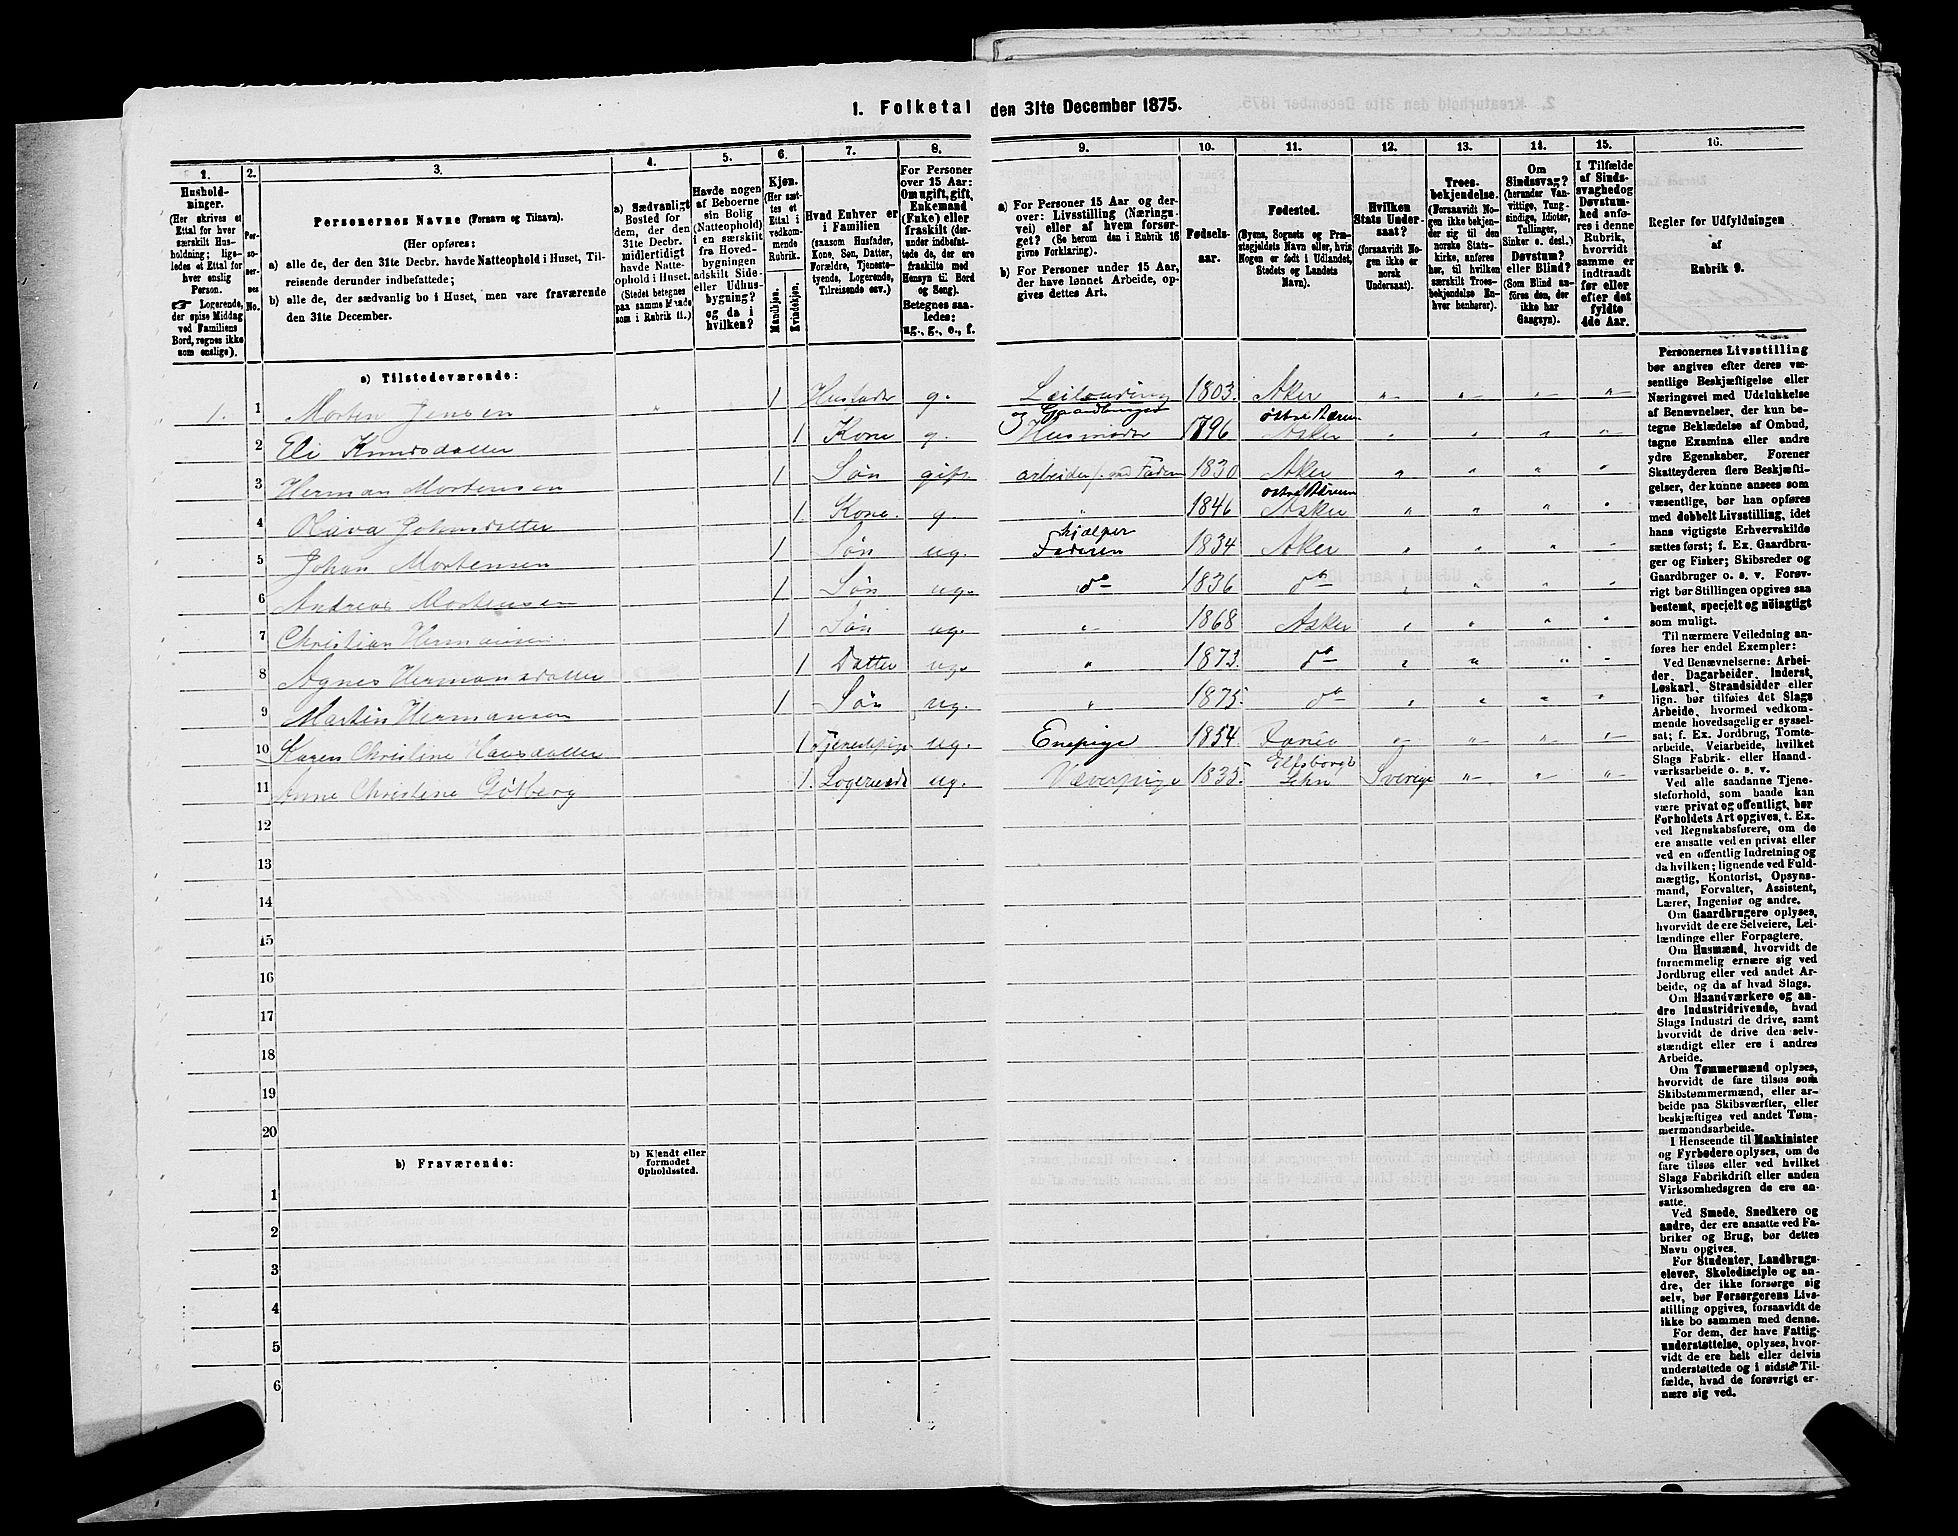 1. Folketal den 31te December 1875.
1. 2. 3. 4. 5. 6. 7. 8. 9. 10. 11. 12. 13. 14. 15. 16.
Hushold-
ninger.
(Her skrives et
Ettal for hver
særskilt Hus-
holdning; lige-
ledes et Ettal for
hver enslig
Person.
☞ Logerende,
der spise Middag
ved Familiens
Bord, regnes ikke
som enslige).
Per-
so-
ner-
nes
No.
Personernes Navne (Fornavn og Tilnavn).
(Her opføres:
a) alle de, der den 31te Decbr. havde Natteophold i Huset, Til-
reisende derunder indbefattede;
b) alle de, der sædvanlig bo i Huset, men vare fraværende
den 31te December.
a) Sædvanligt
Bosted for
dem, der den
31te Decbr.
midlertidigt
havde Natte-
ophold i Huset.
(Stedet betegnes
paa samme Maade
som i Rubrik 11.)
Havde nogen
af Beboerne
sin Bolig
(Natteophold)
i en særskilt
fra Hoved-
bygningen
adskilt Side-
eller Udhus-
bygning?
og da i
hvilken?
Kjøn.
(Her sæt-
tes et
Ettal i
vedkom-
mende
Rubrik.
Mandkjøn.
Kvindekjøn.
Hvad Enhver er
i Familien
(saasom Husfader,
Kone, Søn, Datter,
Forældre, Tjeneste-
tyende, Logerende,
Tilreisende osv.)
For Personer
over 15 Aar:
Om ugift, gift,
Enkemand
(Enke) eller
fraskilt (der-
under indbefat-
tede de, der ere
fraskilte med
Hensyn til Bord
og Seng).
Betegnes saa-
ledes:
ug., g., e., f.
a) For Personer 15 Aar og der-
over: Livsstilling (Nærings-
vei) eller af hvem forsør-
get? (Se herom den i Rubrik 16
givne Forklaring).
b) For Personer under 15 Aar,
der have lønnet Arbeide, op-
gives dettes Art.
Fødsels-
aar.
Fødested.
(Byens, Sognets og Præ-
stegjeldets Navn eller, hvis
Nogen er født i Udlandet,
Stedets og Landets
Navn).
Hvilken
Stats Under-
saat?
(forsaavidt No-
gen ikke er
norsk
Undersaat).
Troes-
bekjendelse.
(Forsaavidt No-
gen ikke bekjen-
der sig til den
norske Stats-
kirke, anføres
her, til hvilken
særskilt Troes-
bekjendelse En-
hver henhører).
Om
Sindssvag?
(herunder Van-
vittige, Tung-
sindige, Idioter,
Tullinger,
Sinker o. desl.)
Døvstum?
eller Blind?
(Som Blind an-
føres den, der
ikke har
Gangsyn).
I Tilfælde
af Sinds-
svaghed og
Døvstum-
hed anfø-
res i denne
Rubrik,
hvorvidt
samme er
indtraadt
før eller
efter det
fyldte
4de Aar.
Regler for Udfyldningen
af
Rubrik 9.
a) Tilstedeværende:
1. 1 Morten Jensen " 1 Husfader g. Leilænding og Gaardbruger 1803. Aker " " "
2 Eli Knudsdatter 1 Kone g. Husmoder 1796 østre Bærum Asker " " " "
3 Herman Mortensen 1 Søn gift arbeider f. ved Faderen 1830 Aker " " " "
4 Oliva Johnsdatter 1 Kone. g " 1846 østre Bærum Asker " " " "
5 Johan Mortensen 1 Søn ug. hjælper Faderen 1834 Aker " " " "
6 Andreas Mortensen 1 Søn ug. do 1836 do " " " "
7 Christian Hermansen. 1 Søn ug. " 1868 Asker " " " "
8 Agnes Hermansdatter 1 Datter ug. " 1873. do " " " "
9 Martin Hermansen 1 Søn ug. " 1875. do " " " "
10 Karen Christine Hansdatter 1 Tjenestepige ug. 1854. " " " "
11 Anne Christine Götberg 1. Logerende ug. Væverpige 1835. Elfsborgs Lehn Sverige " " "
12
13
14
15
16
17
18
19
20
b) Fraværende:
b) Kjendt eller
formodet
Opholdssted.
1
2
3
4
5
6
Personernes Livsstilling
bør angives efter deres væ-
sentlige Beskjæftigelse eller
Næringsvei med Udelukkelse
af Benævnelser, der kun be-
tegne Beklædelse af Ombud,
tagne Examina eller andre
ydre Egenskaber. Forener
Skatteyderen flere Beskjæfti-
gelser, der kunne ansees som
væsentlige, bør han opføres
med dobbelt Livsstilling, idet
hans vigtigste Erhvervskilde
sættes først; f. Ex. Gaardbru-
ger og Fisker; Skibsreder og
Gaardbruger o. s. v. Forøv-
rigt bør Stillingen opgives saa
bestemt, specielt og nöiagtigt
som muligt.
Til nærmere Veiledning an-
føres her endel Exempler:
Ved Benævnelserne: Arbei-
der, Dagarbeider, Inderst,
Løskarl, Strandsidder eller
lign. bør tilføies det Slags
Arbeide, hvormed vedkom-
mende hovedsagelig er syssel-
sat; f. Ex. Jordbrug, Tomte-
arbeide, Veiarbeide, hvilket
Slags Fabrik- eller Haand-
værksarbeide o. s. v.
Ved alle saadanne Tjene-
steforhold, som baade kan
være privat og offentligt, bør
Forholdets Art opgives, t. Ex.
ved Regnskabsførere, om de
ere ansatte ved en privat eller
ved en offentlig Indretning og
da hvilken; lignende ved Fuld-
mægtig, Kontorist, Opsyns-
mand, Forvalter, Assistent,
Lærer, Ingeniør og andre.
Om Gaardbrugere oplyses,
hvorvidt de ere Selveiere, Lei-
lændinge eller Forpagtere.
Om Husmænd, hvorvidt de
fornemmelig ernære sig ved
Jordbrug eller ved andet Ar-
beide, og da af hvad Slags.
Om Haandværkere og an-
dre Industridrivende, hvad
Slags Industri de drive, samt
hvorvidt de drive den selv-
stændigt eller ere i andres
Arbeide.
Om Tømmermænd oplyses,
hvorvidt de fare tilsøs som
Skibstømmermænd, eller ar-
beide paa Skibsværfter, eller
beskjæftiges ved andet Tøm-
mermandsarbeide.
I Henseende til Maskinister
og Fyrbødere oplyses, om de
fare tilsøs eller ved hvilket
Slags Fabrikdrift eller anden
Virksomhedsgren de ere an-
satte.
Ved Smede, Snedkere og
andre, der ere ansatte ved Fa-
briker og Brug, bør dettes
Navn opgives.
For Studenter, Landbrugs-
elever, Skoledisciple og an-
dre, der ikke forsørge sig
selv, bør Forsørgerens Livs-
stilling opgives, forsaavidt de
ikke bo sammen med denne.
For dem, der have Fattig-
understøttelse, oplyses, hvor-
vidt de ere helt eller delvis
understøttede og i sidste Til-
fælde, hvad de forøvrigt er-
nære sig ved.